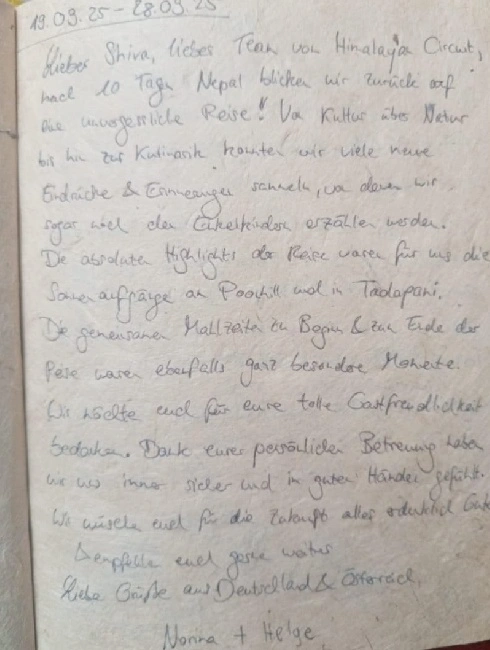 19.09.25 - 28.09.25
Lieber Shiva, liebes Team von Himalayan Circuit,
nach 10 Tagen Nepal blicken wir zurück auf
eine unvergessliche Reise! Von Kultur über Natur
bis hin zur Kulinarik konnten wir viele neue
Eindrücke & Erinnerungen sammeln, von denen wir
sogar noch den Enkelkindern erzählen werden.
Die absoluten Highlights der Reise waren für uns die
Sonnenaufgänge an Poonhill und in Tadapani.
Die gemeinsamen Mahlzeiten zu Beginn & zum Ende der
Reise waren ebenfalls ganz besondere Momente.
Wir möchten euch für eure tolle Gastfreundlichkeit
bedanken. Dank eurer persönlichen Betreuung haben
wir uns immer sicher und in guten Händen gefühlt.
Wir wünschen euch für die Zukunft alles Gute
& empfehlen euch gerne weiter
Liebe Grüße aus Deutschland & Österreich,
Norina + Helge